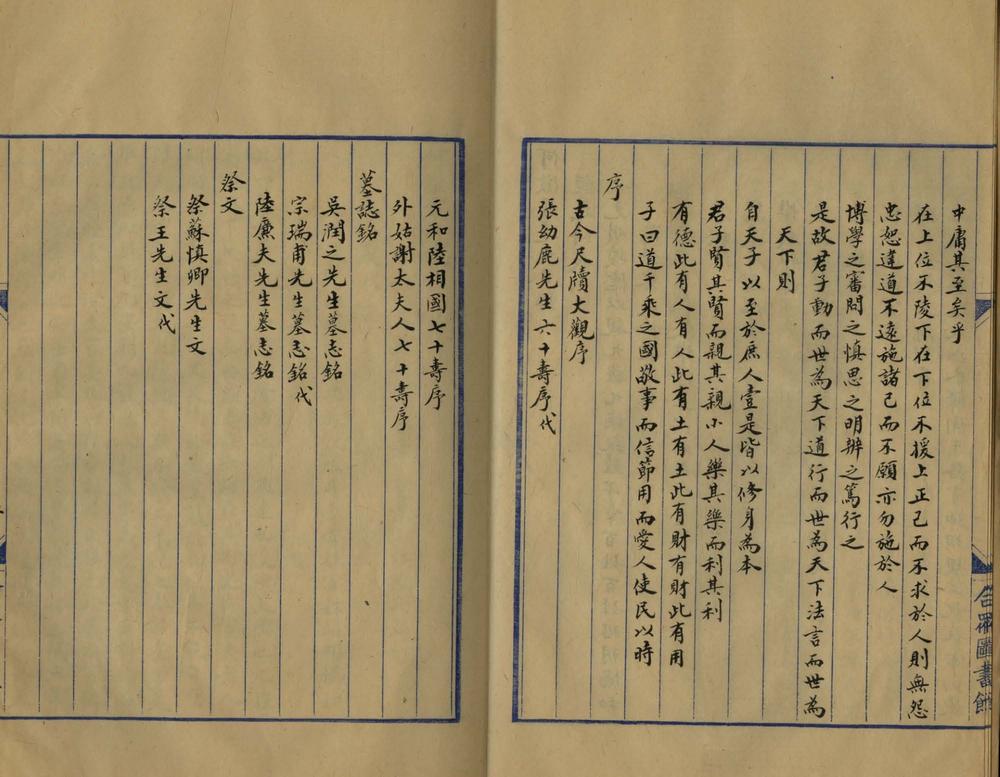 中庸其至矣乎
在上位不陵下在下位不援上正己而不求於人則無怨
忠恕違道不遠施諸己而不願亦勿施於人
博學之審問之慎思之明辨之篤行之
是故君子動而世為天下道行而世為天下法言而世為
天下則
自天子以至於庶人壹是皆以修身為本
君子賢其賢而親其親小人樂其樂而利其利
有德此有人有人此有土有土此有財有財此有用
子曰道千乘之國敬事而信節用而愛人使民以時
序
古今尺牘大觀序
張幼鹿先生六十壽序代
元和陸相國七十壽序
外姑謝太夫人七十壽序
墓誌銘
吳潤之先生墓志銘
宗瑞甫先生墓志銘代
陸廉夫先生墓志銘
祭文
祭蘇慎卿先生文
祭王先生文代
合眾圖書館